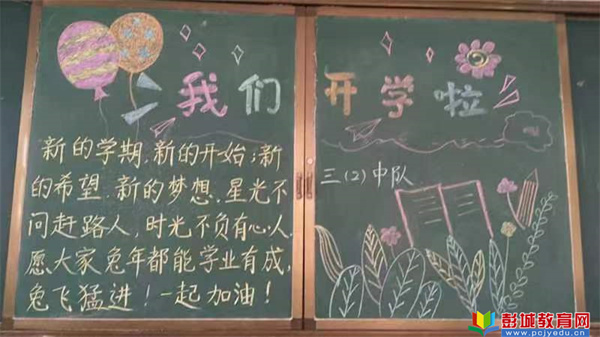 我们开学啦
新的学期.新的开始;新
的希望.新的梦想.星光不
问赶路人,时光不负有心人.
愿大家兔年都能学业有成,
兔飞猛进!一起加油!
三(2)中队
彭城教育网
www.pcjyedu.cn